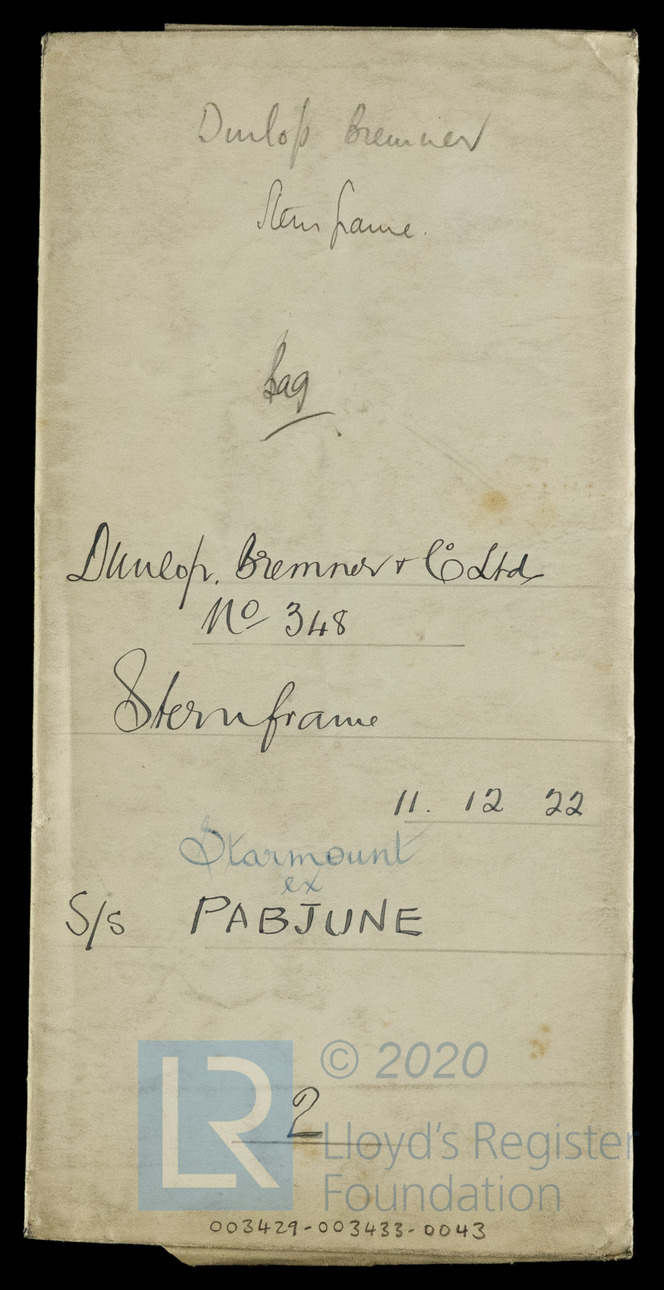 Dunlop Bremner
Stern frame.
Bag
Dunlop, Bremner & Co Ltd
No 348
Sternframe
11. 12 22
Starmount
ex
S/s PABJUNE
2
LR © 2020
Lloyd's Register
Foundation
003429-003433-0043